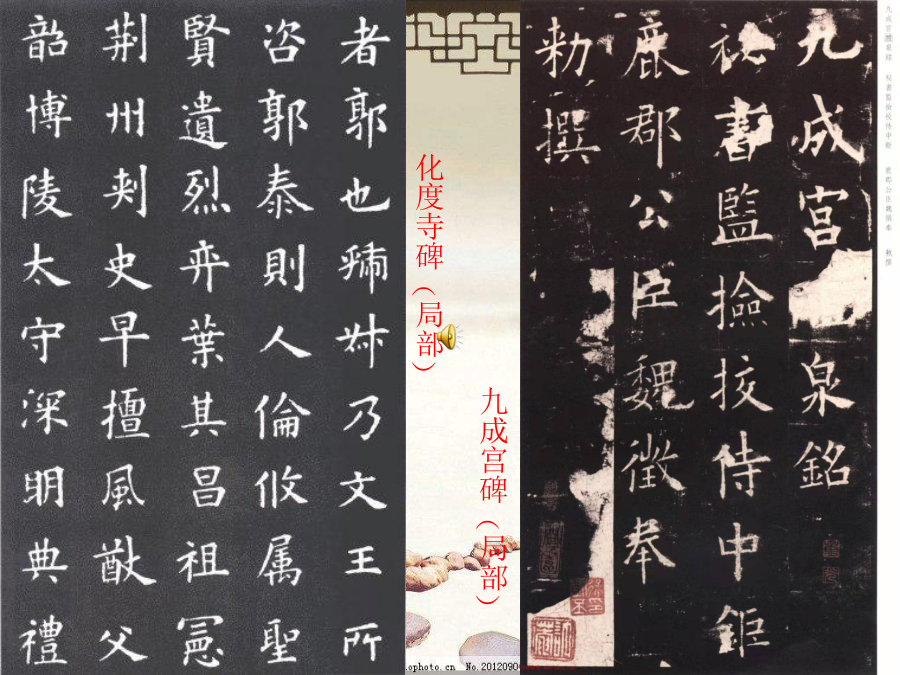 者郭也虢叔乃文王所
咨郭泰則人倫攸属聖
賢遺烈弈葉其昌祖憲
荆州刺史早擅風猷父
韶博陵太守深明典禮
化度寺碑（局部）
九成宫碑（局部）
九成宮泉銘
祕書監撿挍侍中鉅
鹿郡公臣魏徵奉
勑撰
九成宫醴泉銘 秘書監撿校侍中鉅 鹿郡公臣魏徵奉 敕撰
ophoto.cn No.2012090